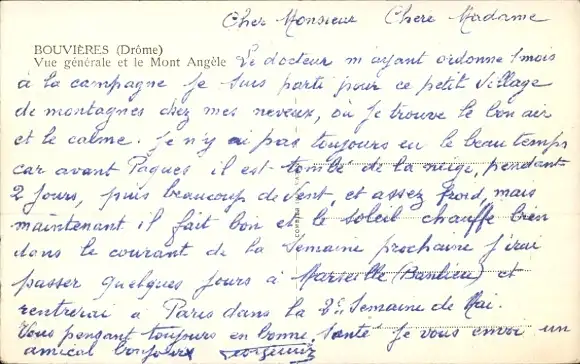 Cher Monsieur Chere Madame
BOUVIÈRES (Drôme)
Vue générale et le Mont Angèle
Le docteur m ayant ordonne 1 mois
à la campagne je suis parti pour ce petit village
de montagnes chez mes neveux, où je trouve le bon air
et le calme. Je n'y ai pas toujours eu le beau temps
car avant Paques il est tombé de la neige, pendant
2 jours, puis beaucoup de vent, et assez froid, mais
maintenant il fait bon et le soleil chauffe bien
dans le courant de la semaine prochaine j'irai
passer quelques jours à Marseille (Banlieu) et
rentrerai à Paris dans la 2e Semaine de Mai.
Vous pensant toujours en bonne santé je vous envoi un
amical bonjour